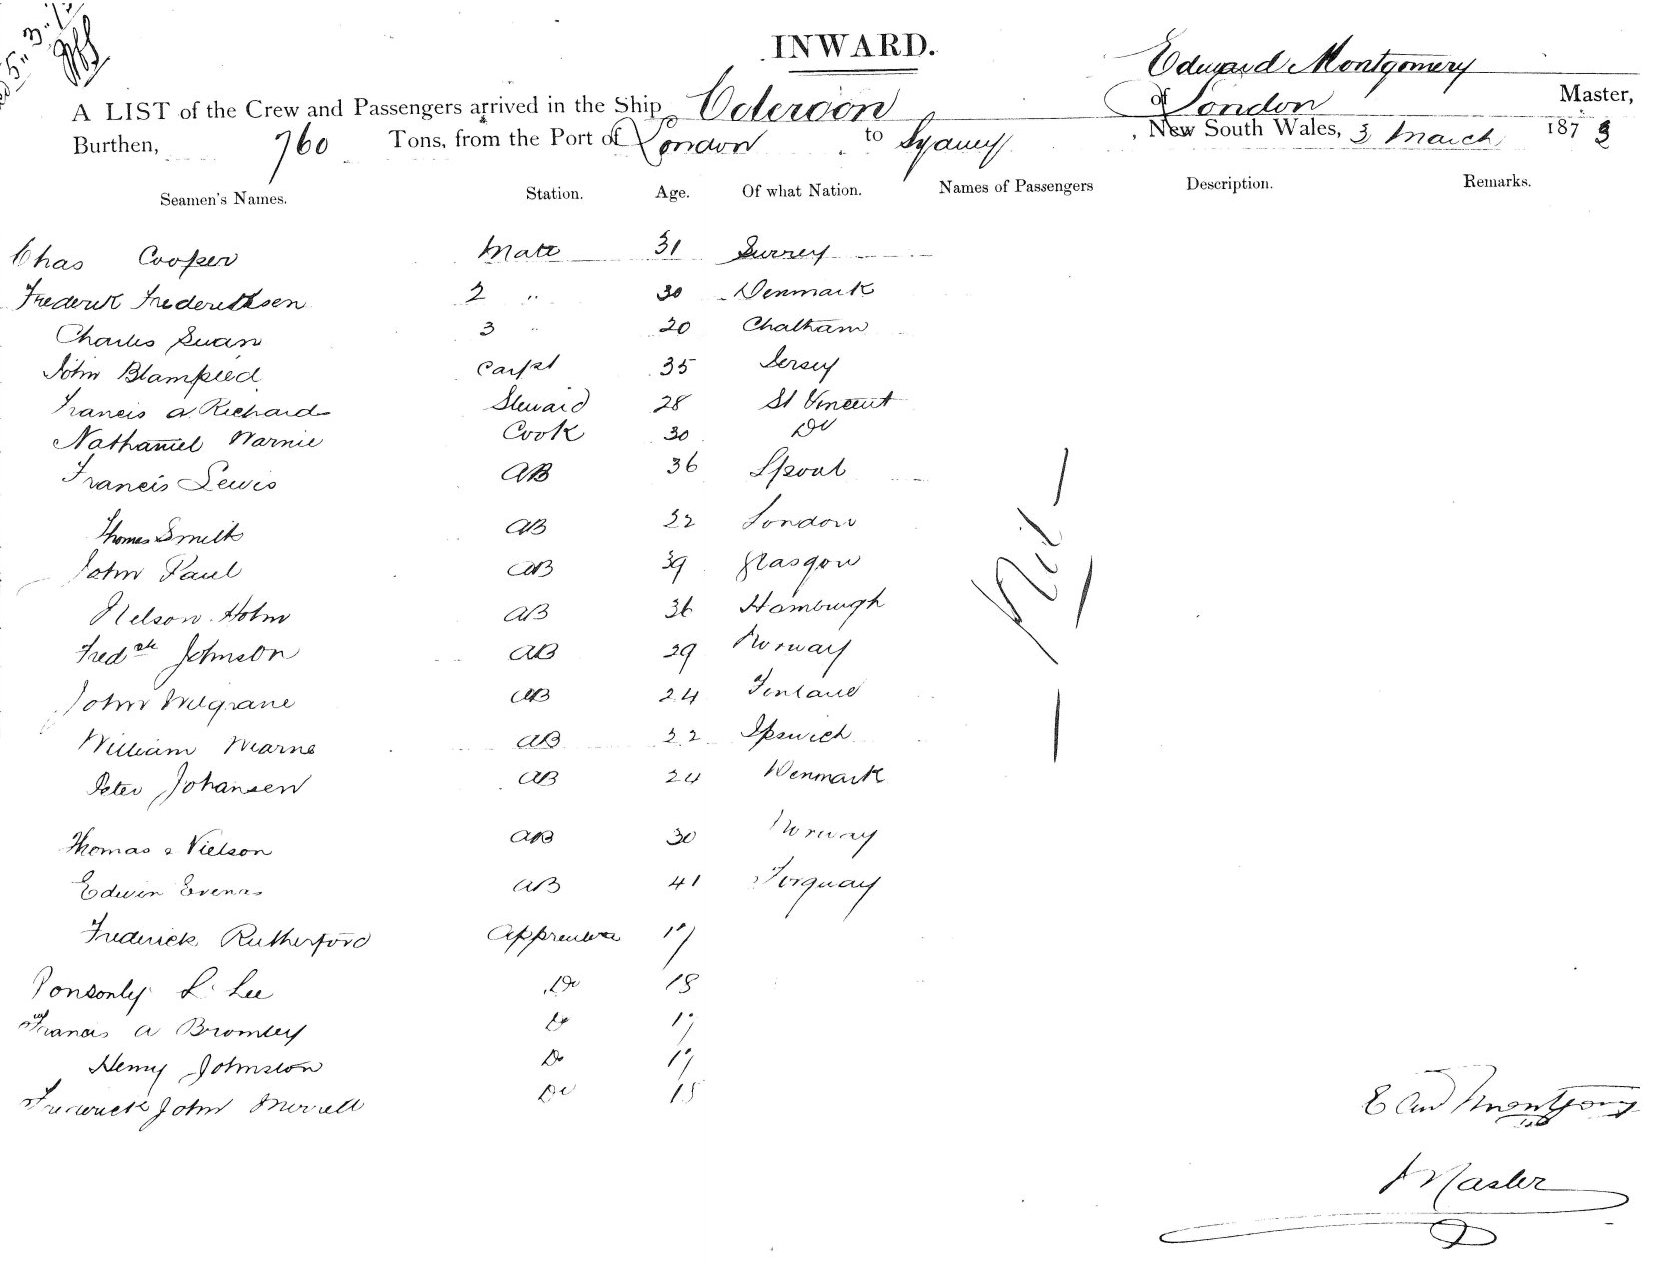 INWARD.
Edward Montgomery
A LIST of the Crew and Passengers arrived in the Ship of London Master,
Burthen, 760 Tons, from the Port of London to Sydney, New South Wales, 3 March 1873
Seamen's Names. Station. Age. Of what Nation. Names of Passengers Description. Remarks.
Chas Cooper Mate 31 Surrey
Frederik Frederiksen 2 " 30 Denmark
Charles Swan 3 " 20 Chatham
John Blampied Carpt 35 Jersey
Francis a Richards Steward 28 St Vincent
Nathaniel Warnie Cook 30 Do
Francis Lewis AB 36
Thomas Smith AB 22 London
John Paul AB 39 Glasgow
Nelson Holm AB 36 Hamburgh
Fredck Johnson AB 29 Norway
John AB 24 Finland
William Warne AB 22 Ipswich
Peter Johansen AB 24 Denmark
Thomas Nielson AB 30 Norway
Edwin Evens AB 41 Torquay
Frederick Rutherford Apprentice 17
Ponsonby L Lee Do 18
Francis A Bromley Do 17
Henry Johnston Do 17
Frederick John Merrell Do 15
Nil
Montgomery
Master